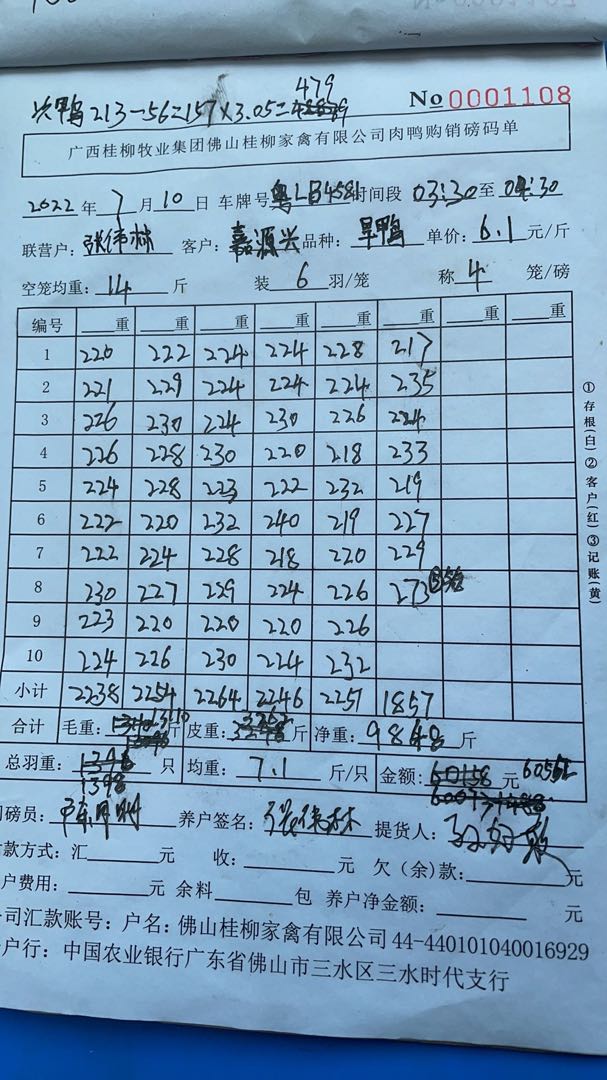 次鸭 213-56=157×3.05=479
No 0001108
广西桂柳牧业集团佛山桂柳家禽有限公司肉鸭购销磅码单
2022年7月10日 车牌号 粤LB4581 时间段 03:30 至 04:30
联营户:张伟林 客户:嘉源兴 品种:旱鸭 单价:6.1元/斤
空笼均重:14斤 装6羽/笼 称4笼/磅
编号 重 重 重 重 重 重 重 重
1 220 222 224 224 228 217
2 221 229 224 224 224 235
3 226 230 224 230 226 224
4 226 228 230 220 218 233
5 224 228 223 222 232 219
6 222 220 232 240 219 227
7 222 224 228 218 220 229
8 230 227 229 224 226 273
9 223 220 220 220 226
10 224 226 230 224 232
小计 2238 2254 2264 2246 2251 1857
合计 毛重:13110斤 皮重:3262斤 净重:9848斤
总羽重:1398只 均重:7.1斤/只 金额:元 60552
磅员: 养户签名:张伟林 提货人:
款方式:汇 元 收: 元 欠(余)款: 元
户费用: 元 余料 包 养户净金额: 元
司汇款账号:户名:佛山桂柳家禽有限公司 44-440101040016929
户行:中国农业银行广东省佛山市三水区三水时代支行
①存根(白)②客户(红)③记账(黄)